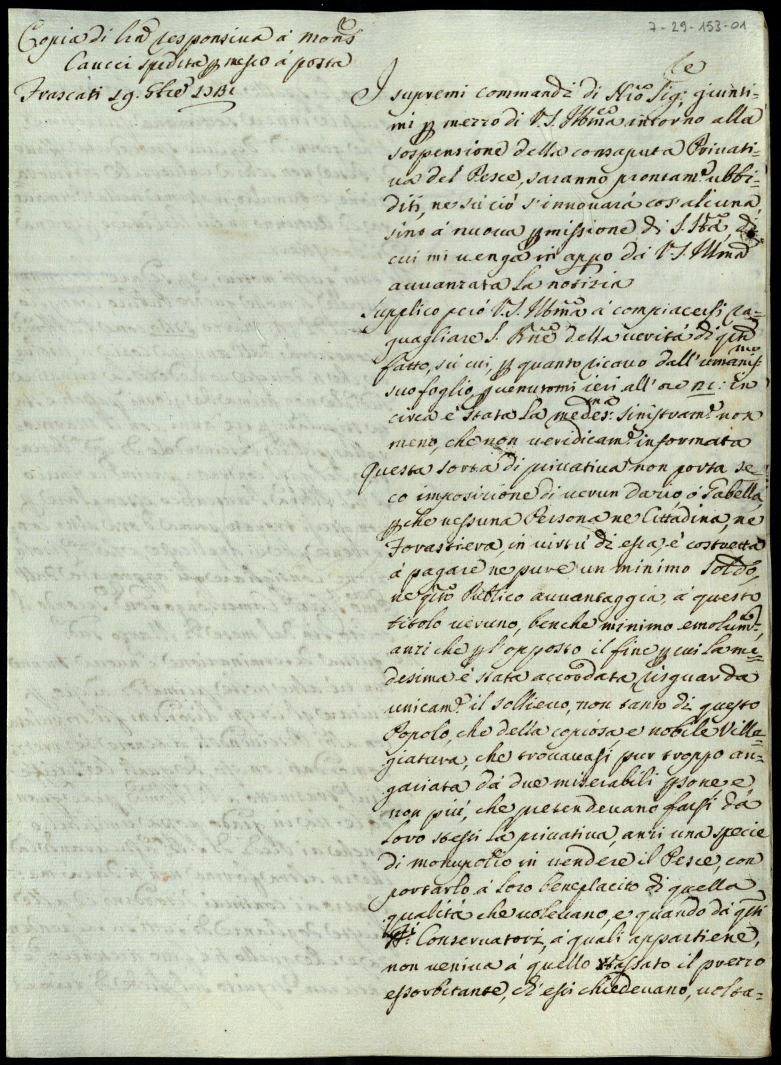 7-29-153-01
Copia di lrã responsiva à monsre
Caucci spedita p messo à posta
Frascati 19. 8bre
I supremi commandi di Nrõ Sigre giunti=
mi p mezzo di V.S. Illma intorno alla
sospensione della consaputa Privati=
va del Pesce, saranno prontame ubbi=
diti, ne sù ciò s'innovarà cos'alcuna
sino à nuova pmissione di S. Stà, di
cui mi venga in appo da V.S. Illma
avvanzata la notizia
Supplico pciò V.S. Illma à compiacersi ra=
guagliare S. Bne della verità di qsto
fatto, sù cui, p quanto ricavo dall'umanismo
suo foglio pvenutomi ieri all'ore in
circa è stata la medesma sinistrame non
meno, che non veridicame informata
Questa sorta di privativa non porta se=
co imposizione di verun Dazio ò Gabella,
pche nessuna Persona ne Cittadina, ne
Forastiera, in virtù di essa, è costretta
à pagare ne pure un minimo soldo,
ne qsto Publico avvantaggia, à questo
titolo veruno, benche minimo emolumto,
anzi che p l'opposto il fine p cui la me=
desima è stata accordata risguarda
unicame il sollievo, non tanto di questo
Popolo, che della copiosa e nobile Villeg=
giatura, che trovavasi pur troppo an=
gariata dà due miserabili psone, e
non più, che pretendevano farsi dà
loro stessi la privativa, anzi una specie
di monupolio in vendere il Pesce, con
portarlo à loro beneplacito di quella
qualità che volevano, e quando dà qsti
SSri Conservatori, à quali appartiene,
non veniva à quello tassato il prezzo
essorbitante, ch'essi chiedevano, volta=